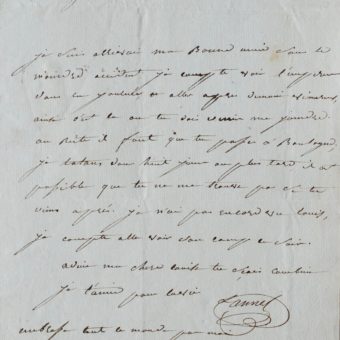 je suis arrivé ma bonne amie sans le
moindre accident je compte voir l'empereur
dans la journée et aller après demain à
ainsi c'est la ou tu dois venir me joindre
au reste il faut que tu passe a Boulogne
je tatans dans huit jours au plus tard il est
possible que tu ne me trouve pas si tu
viens après. je n'ai pas encore vu louis,
je compte aller voir son camp ce soir.
adieu ma chere louise tu sais combien
je t'aime pour la vie
Lannes
embrasse tout le monde pour moi